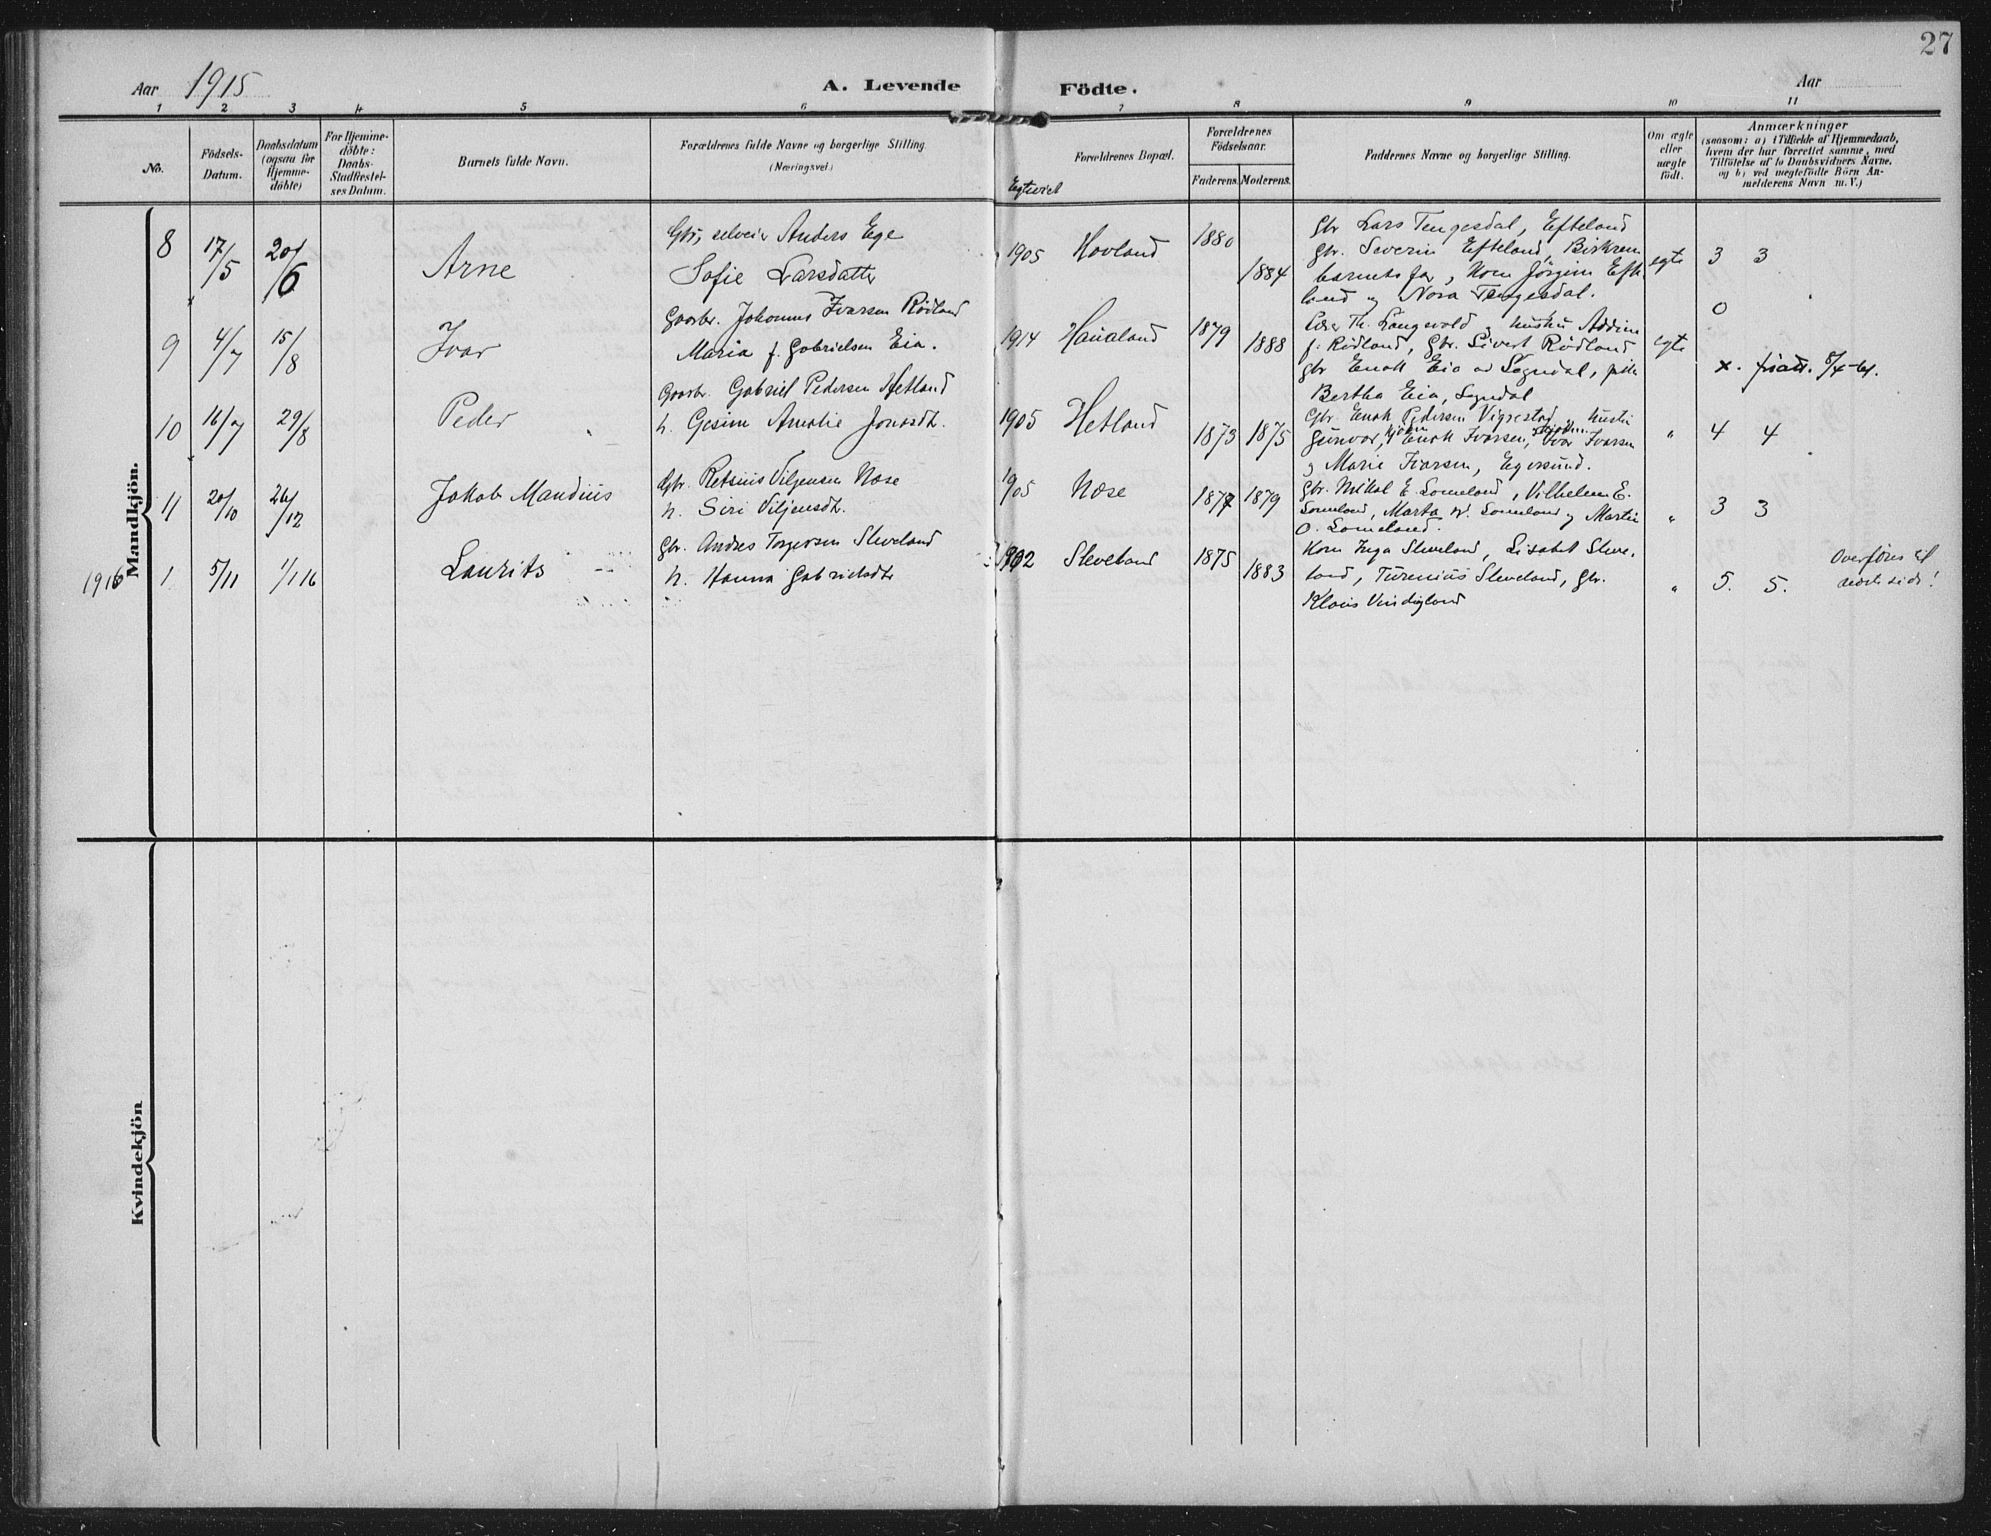 27
Aar 1915
A. Levende
Födte.
Aar
1 2 3 4 5 6 7 8 9 10 11
No.
Födsels-
Datum.
Daabsdatum
(ogsaa for
Hjemme-
döbte)
For Hjemme-
döbte:
Daabs-
Stadfæstel-
ses Datum.
Barnets fulde Navn.
Forældrenes fulde Navne og borgerlige Stilling
(Næringsvei.)
Egteviet
Forældrenes Bopæl.
Forældrenes
Födselsaar.
Faderens.
Moderens.
Faddernes Navne og borgerlige Stilling.
Om ægte
eller
uægte
födt.
Anmærkninger
(saasom: a) i Tilfælde af Hjemmedaab,
hvem der har forrettet samme, med
Tilföielse af to Daabsvidners Navne.
og b) ved uægtefödte Börn An-
melderens Navn m. V.)
Mandkjön.
8 17/5 20/6 Arne
Gbr, selveier Anders Ege
Sofie Larsdatter
1905 Hovland 1880 1884
Gbr Lars Tengesdal, Efteland
gbr. Severin Efteland, Birkrem
barnets far, Kone Jörgine Efte
land og Nora Tengesdal.
egte 3 3
9 4/7 15/8 Ivar
Gaardbr. Johannes Ivarsen Rödland
Maria f. Gabrielsen Eia.
1914 Haualand 1879 1888
Th. Langvold og hustru
f. Rödland, Gbr. Sivert Rödland
gbr Enok Eia av Sogndal, pike
Bertha Eia, Sogndal
egte 0
x.
10 16/7 29/8 Peder
Gaardbr. Gabriel Pedersen Hetland
h. Gesine Amalie Jonasdt.
1905 Hetland 1873 1875
Gbr. Enok Pedersen Vigrestad og hustru
Gunvor, Enok Ivarsen, Ivar Ivarsen
og Marie Ivarsen, Egersund.
" 4 4
11 20/10 26/12 Jakob Mandius
Gbr. Retsius Viljensen Nese
h. Siri Viljensdt.
1905 Nese 1877 1879
Gbr. Mikal E. Lomeland, Vilhelm E.
Lomeland, Marta W. Lomeland og Martin
O. Lomeland.
" 3 3
1916 1 5/11 1/1 16 Laurits
Gbr. Andres Torgersen Sleveland
h. Hanna Gabrielsdtr
1902 Sleveland 1875 1883
Kone Inga Sleveland, Lisabet Sleve-
land, Turenius Sleveland, Gbr.
Klaus Vindigland
" 5. 5.
Overföres til
side!
Kvindekjön